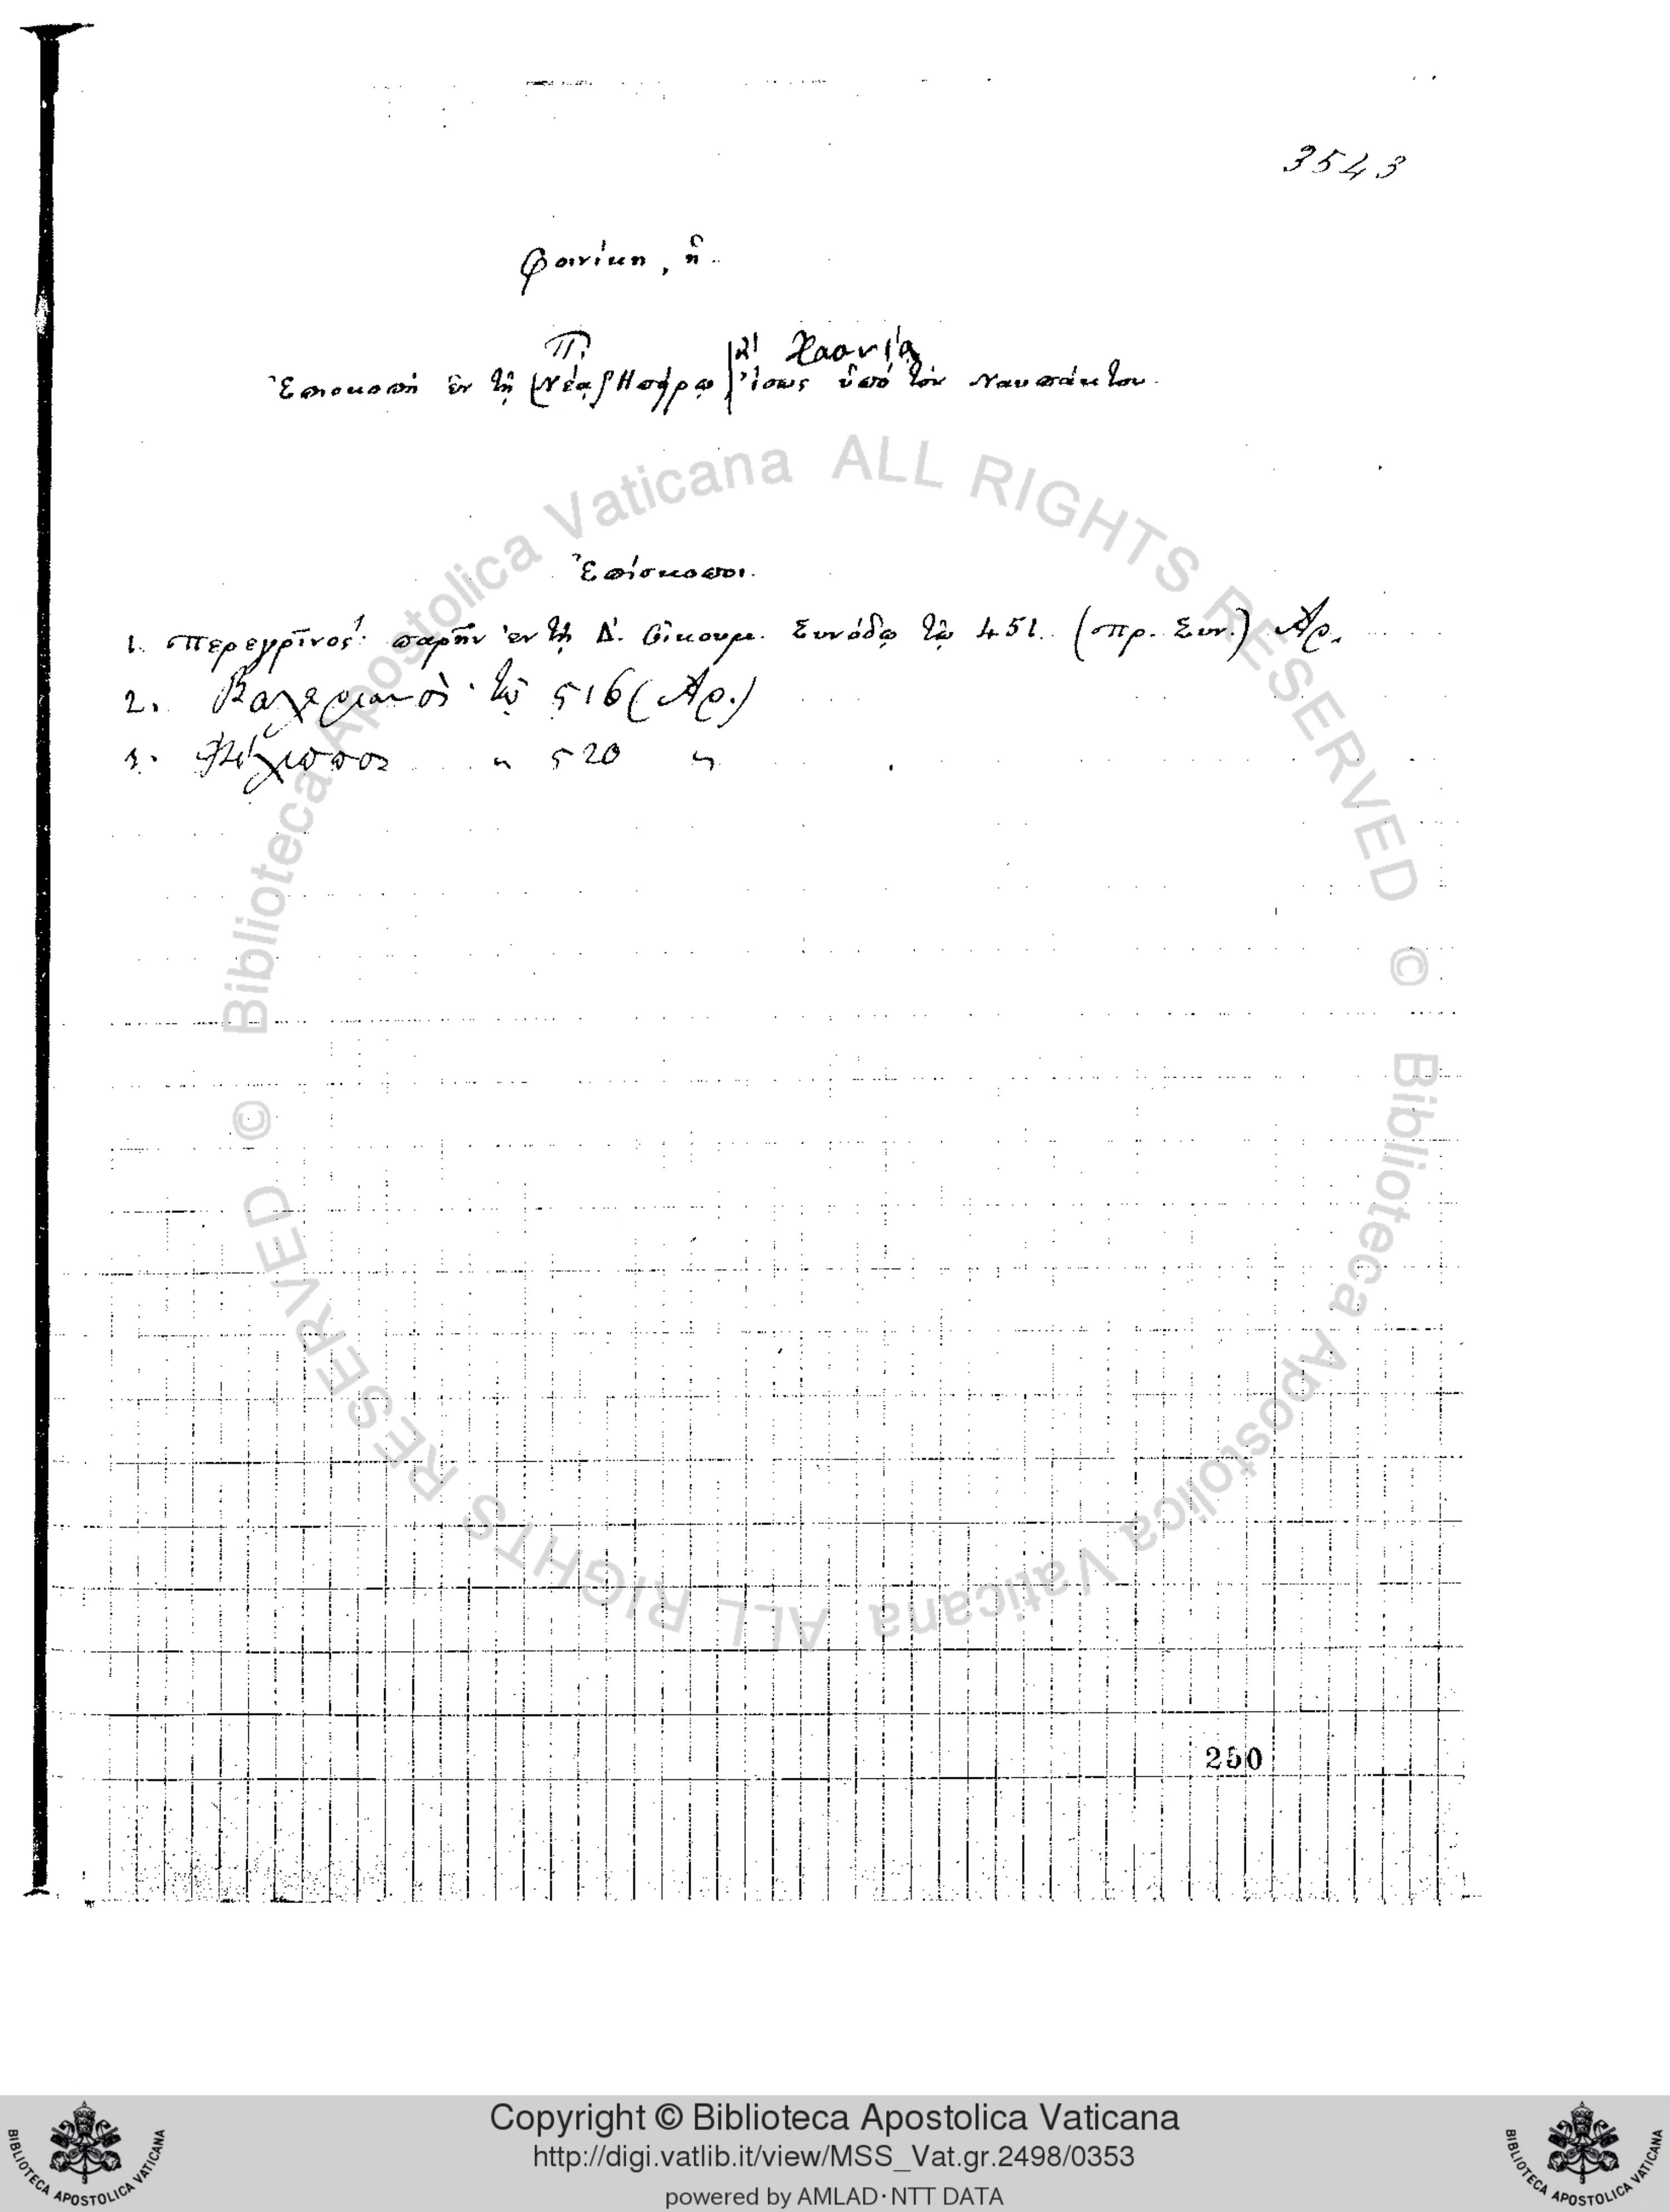 3543
Φοινίκη, ἡ.
Π. κ' Χαονίᾳ
Ἐπισκοπὴ ἐν τῇ (Νέᾳ) Ἠπείρῳ ἴσως ὑπὸ τὸν Ναυπάκτου.
Ἐπίσκοποι.
1. Περεγρῖνος· παρῆν ἐν τῇ Δ'. Οἰκουμ. Συνόδῳ τῷ 451. (πρ. Συν.) Ἀρ.
2. Βαλεριανὸς· τῷ 516 (Ἀρ.)
3. Φίλιππος " 520 "
250
© Biblioteca Apostolica Vaticana ALL RIGHTS RESERVED
© Biblioteca Apostolica Vaticana ALL RIGHTS RESERVED
Copyright © Biblioteca Apostolica Vaticana
http://digi.vatlib.it/view/MSS_Vat.gr.2498/0353
powered by AMLAD·NTT DATA
BIBLIOTECA APOSTOLICA VATICANA
BIBLIOTECA APOSTOLICA VATICANA